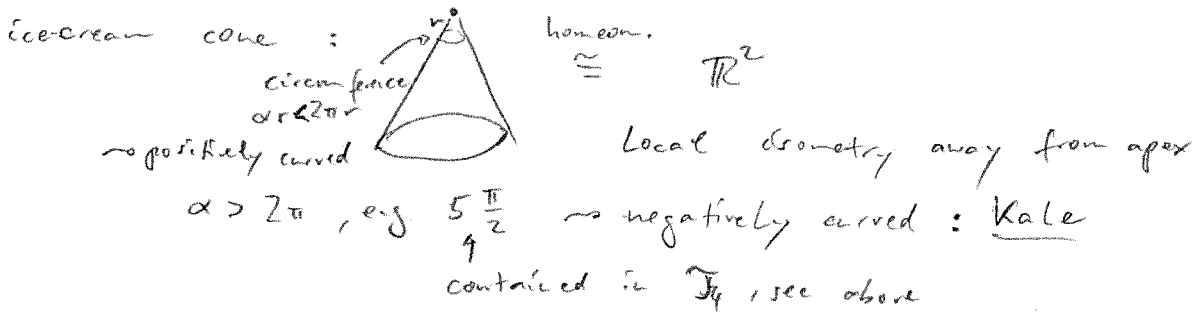 ice-cream cone :
r
homeom.
≅ ℝ²
circumference
αr < 2πr
⇝ positively curved
Local isometry away from apex
α > 2π, e.g. 5 π/2 ⇝ negatively curved : Kale
↑
contained in , see above